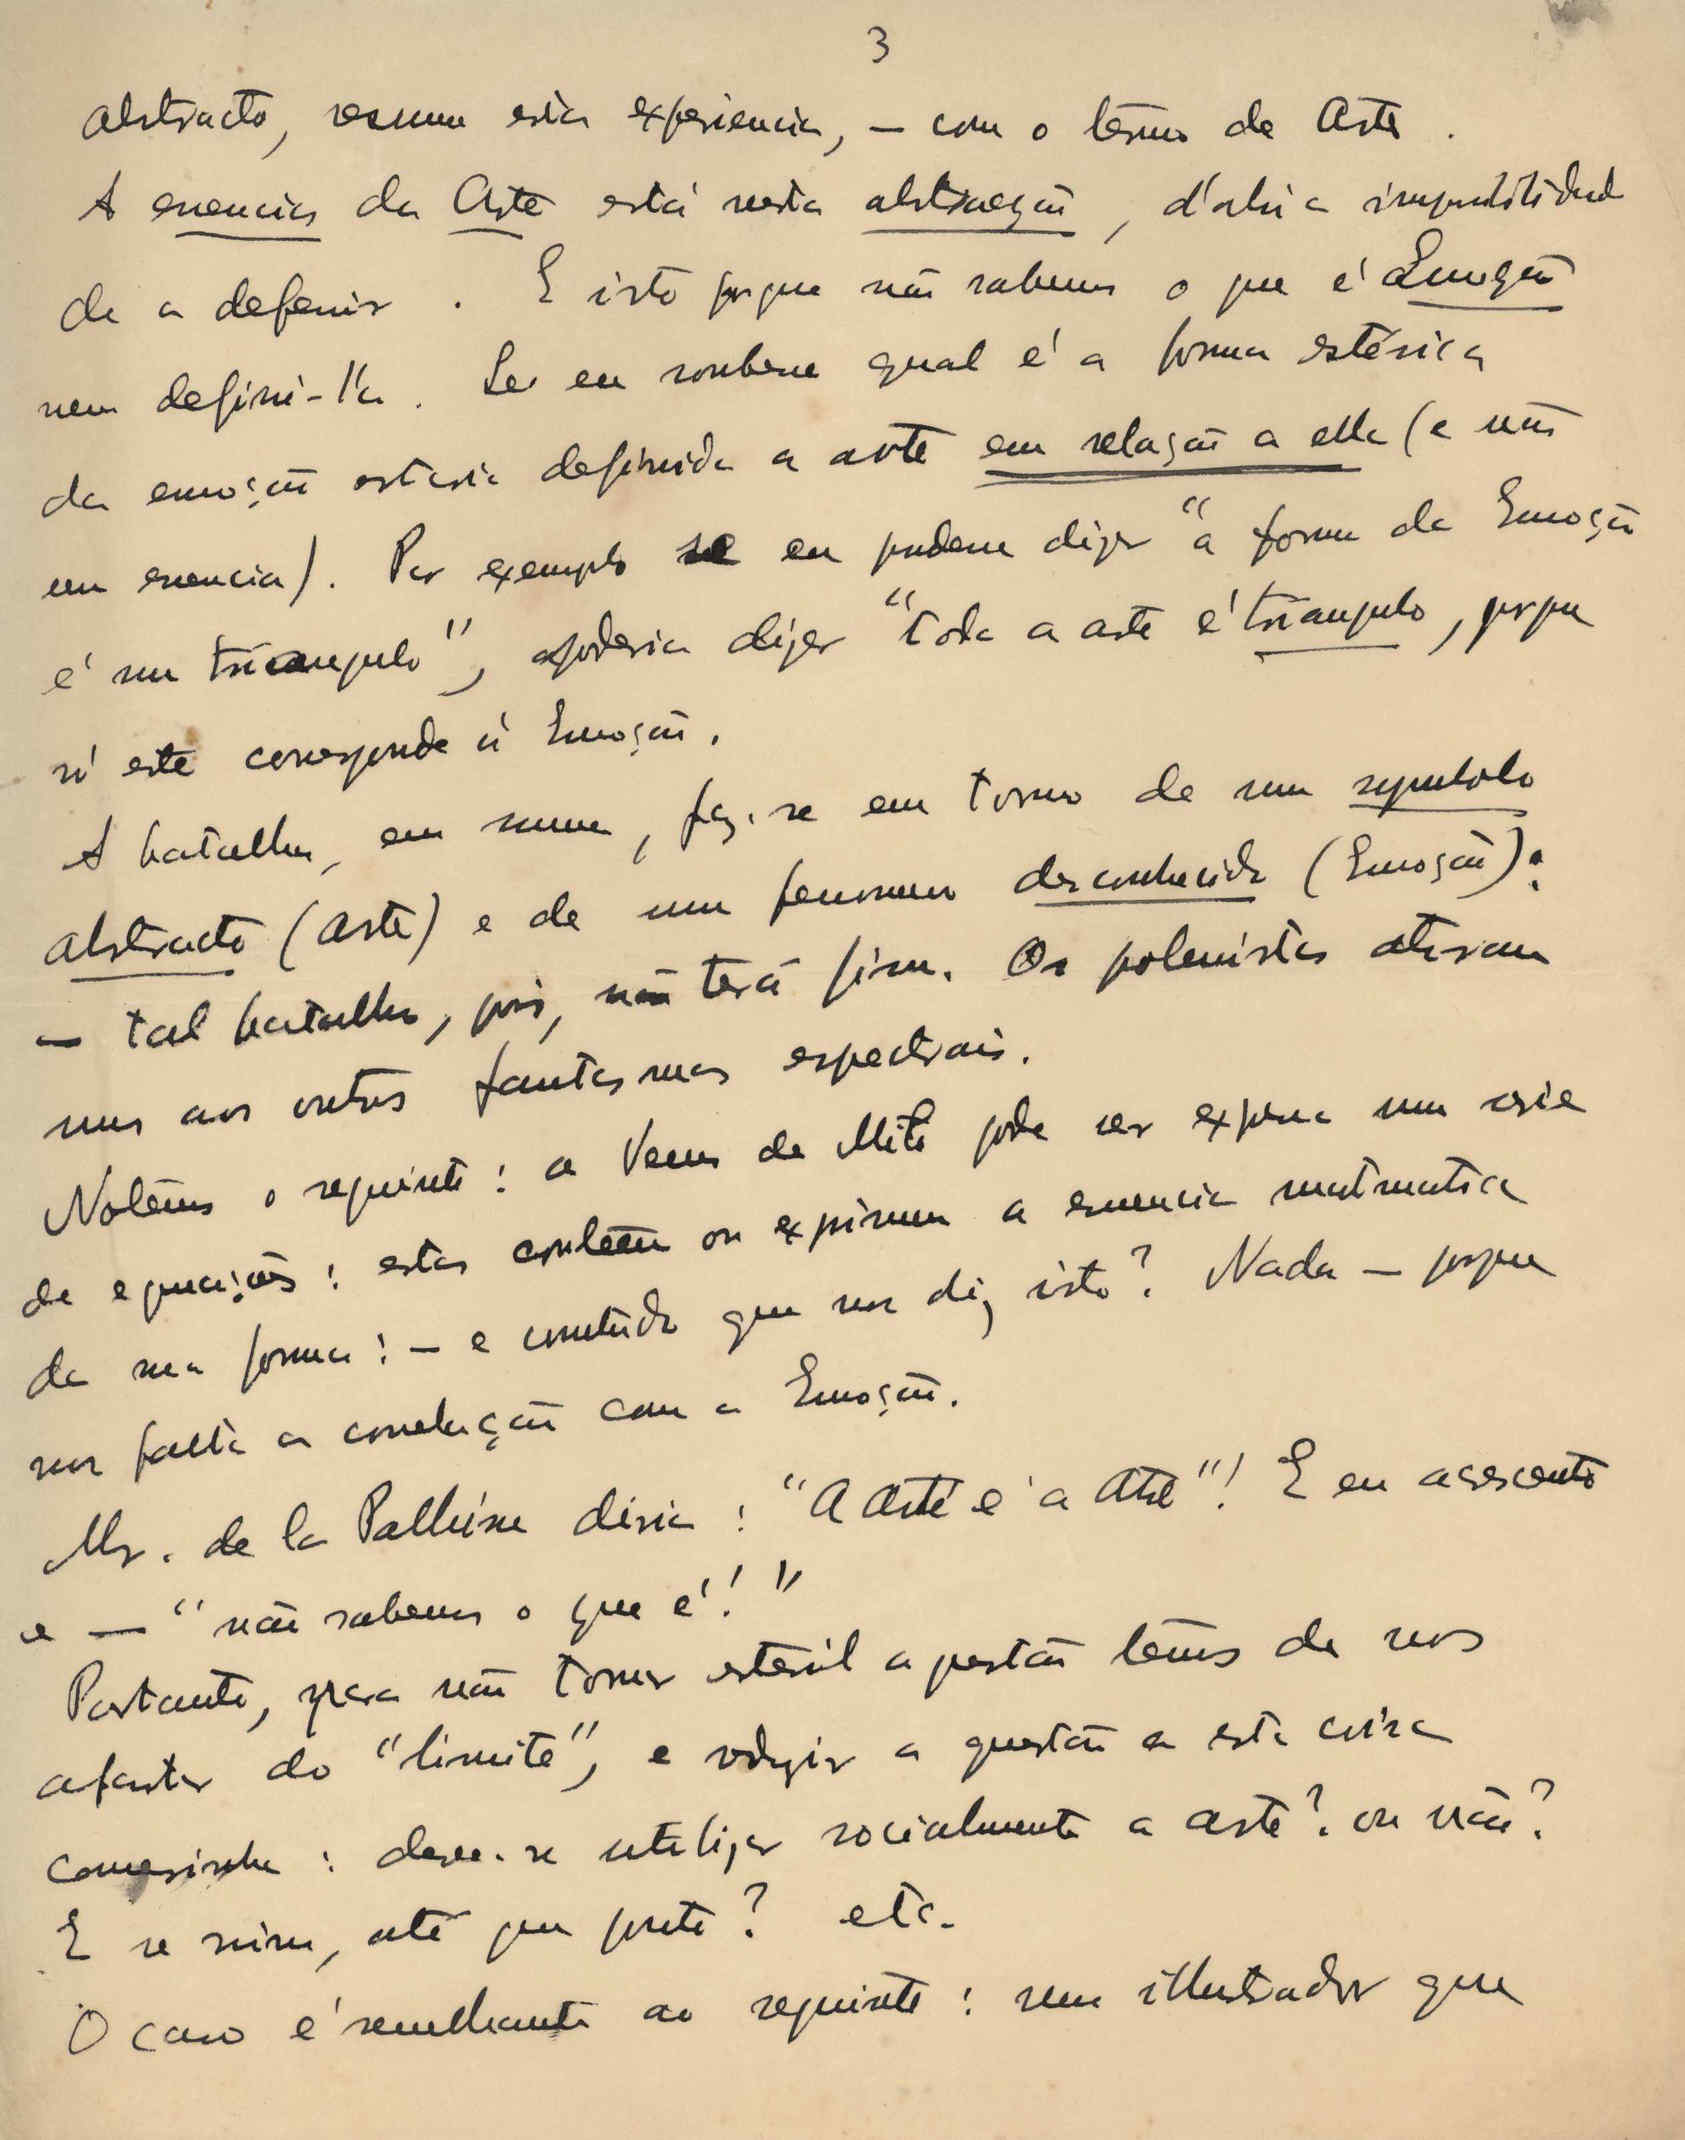 3
abstracto, resume esta experiencia, — com o têrmo de Arte.
A essencia da Arte está nesta abstracção, d'ahi a impossibilidade
de a defenir. E isto porque não sabemos o que é a Emoção
nem defini-l'a. Se eu soubesse qual é a forma esterica
da emoção estaria definida a arte em relação a ella (e não
em essencia). Por exemplo se eu pudesse dizer "a forma da Emoção
é um triangulo", poderia dizer "toda a arte é triangulo, porque
só este corresponde á Emoção.
A batalha, em suma, faz-se em torno de um symbolo
abstracto (Arte) e de um fenomeno desconhecido (Emoção):
— tal batalha, pois, não terá fim. Os polemistas atiram
uns aos outros fantasmas espectrais.
Notêmos o seguinte: a Venus de Milo pode ser expressa numa serie
de equações: estas contêem ou exprimem a essencia matematica
da sua forma: — e comtudo que nos diz isto? Nada — porque
nos falta a correlação com a Emoção.
Mr. de la Pallisse diria: "A Arte é a Arte"! E eu acrescento
e — "não sabemos o que é!"
Portanto, para não tornar esteril a questão têmos de nos
afastar do "limite", e redigir a questão a esta coisa
comesinha: deve-se utilizar socialmente a arte? ou não?
E se sim, até que ponto? etc.
O caso é semelhante ao seguinte: um illustrador que